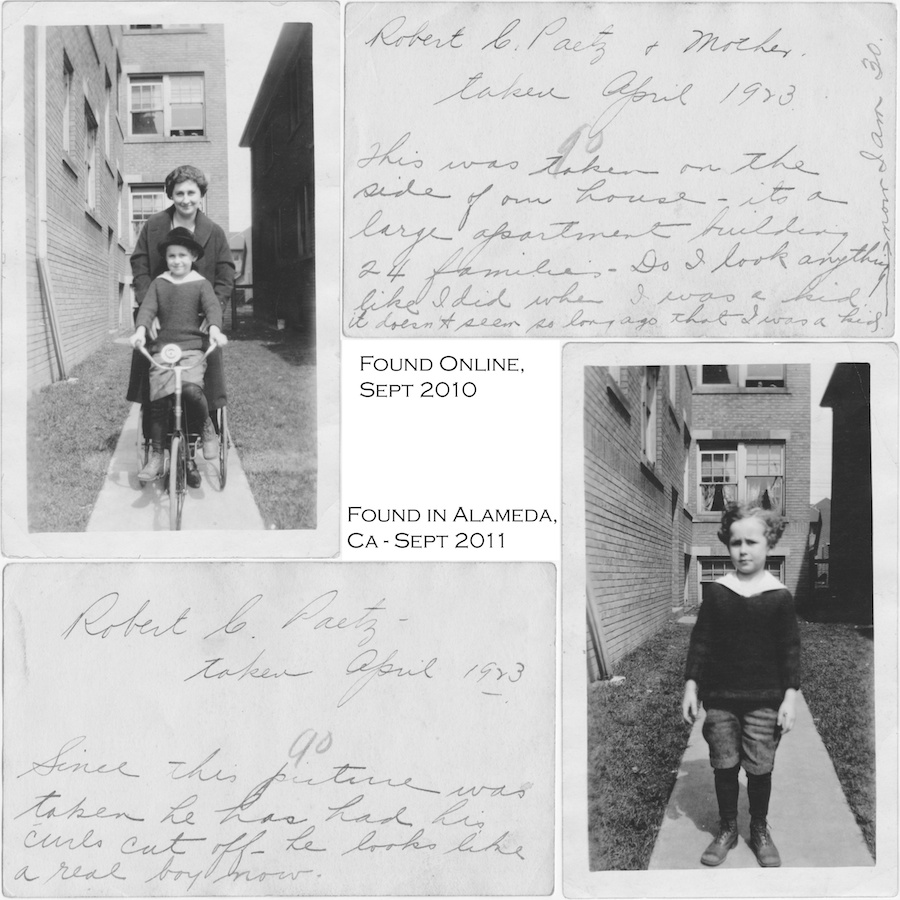 Robert C. Paetz & Mother.
taken April 1923
90
This was taken on the
side of our house - its a
large apartment building
24 families - Do I look anything
like I did when I was a kid
it doesn't seem so long ago that I was a kid,
now I am 30.
Found Online,
Sept 2010
Found in Alameda,
Ca - Sept 2011
Robert C. Paetz -
taken April 1923
90
Since this picture was
taken he has had his
curls cut off - he looks like
a real boy now.